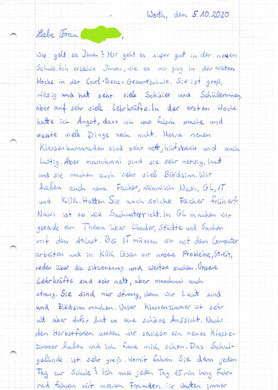 Worth, den 5.10.2020
Liebe Frau
wie geht es Ihnen? Mir geht es super gut in der neuen
Schule. Ich erzähle Ihnen, wie es mir ging in der ersten
Woche in der Carl-Benz-Gesamtschule. Sie ist groß,
riesig und hat sehr viele Schüler und Schülerinnen,
aber auch sehr viele Lehrkräfte. In der ersten Woche
hatte ich Angst, dass ich was falsch mache und
wusste viele Dinge noch nicht. Meine neuen
Klassenkameraden sind sehr nett, hilfsbereit und auch
lustig. Aber manchmal sind sie sehr nervig, laut
und sie machen auch sehr viel Blödsinn. Wir
haben auch neue Fächer, nämlich Nawi, GL, IT
und KUK. Hatten Sie auch solche Fächer früher?
Nawi ist so wie Sachunterricht. In GL machen wir
gerade ein Thema über Länder, Städte und Suchen
mit dem Atlas. Bei IT müssen wir mit dem Computer
arbeiten und in KUK lösen wir unsere Probleme, Streit,
reden über die Sitzordnung und weitere Sachen. Unsere
Lehrkräfte sind sehr nett, aber manchmal auch
streng. Sie sind nur streng, wenn wir laut sind
und Blödsinn machen. Unser Klassenzimmer ist sehr
alt aber dafür hat es eine schöne Aussicht. Nach
den Herbstferien werden wir sowieso ein neues Klassen-
zimmer haben und ich freue mich schon. Das Schul-
gelände ist sehr groß. Womit fahren Sie denn jeden
Tag zur Schule? Ich muss jeden Tag 15 min lang Fahr-
rad fahren mit meinen Freunden. Es dauert immer